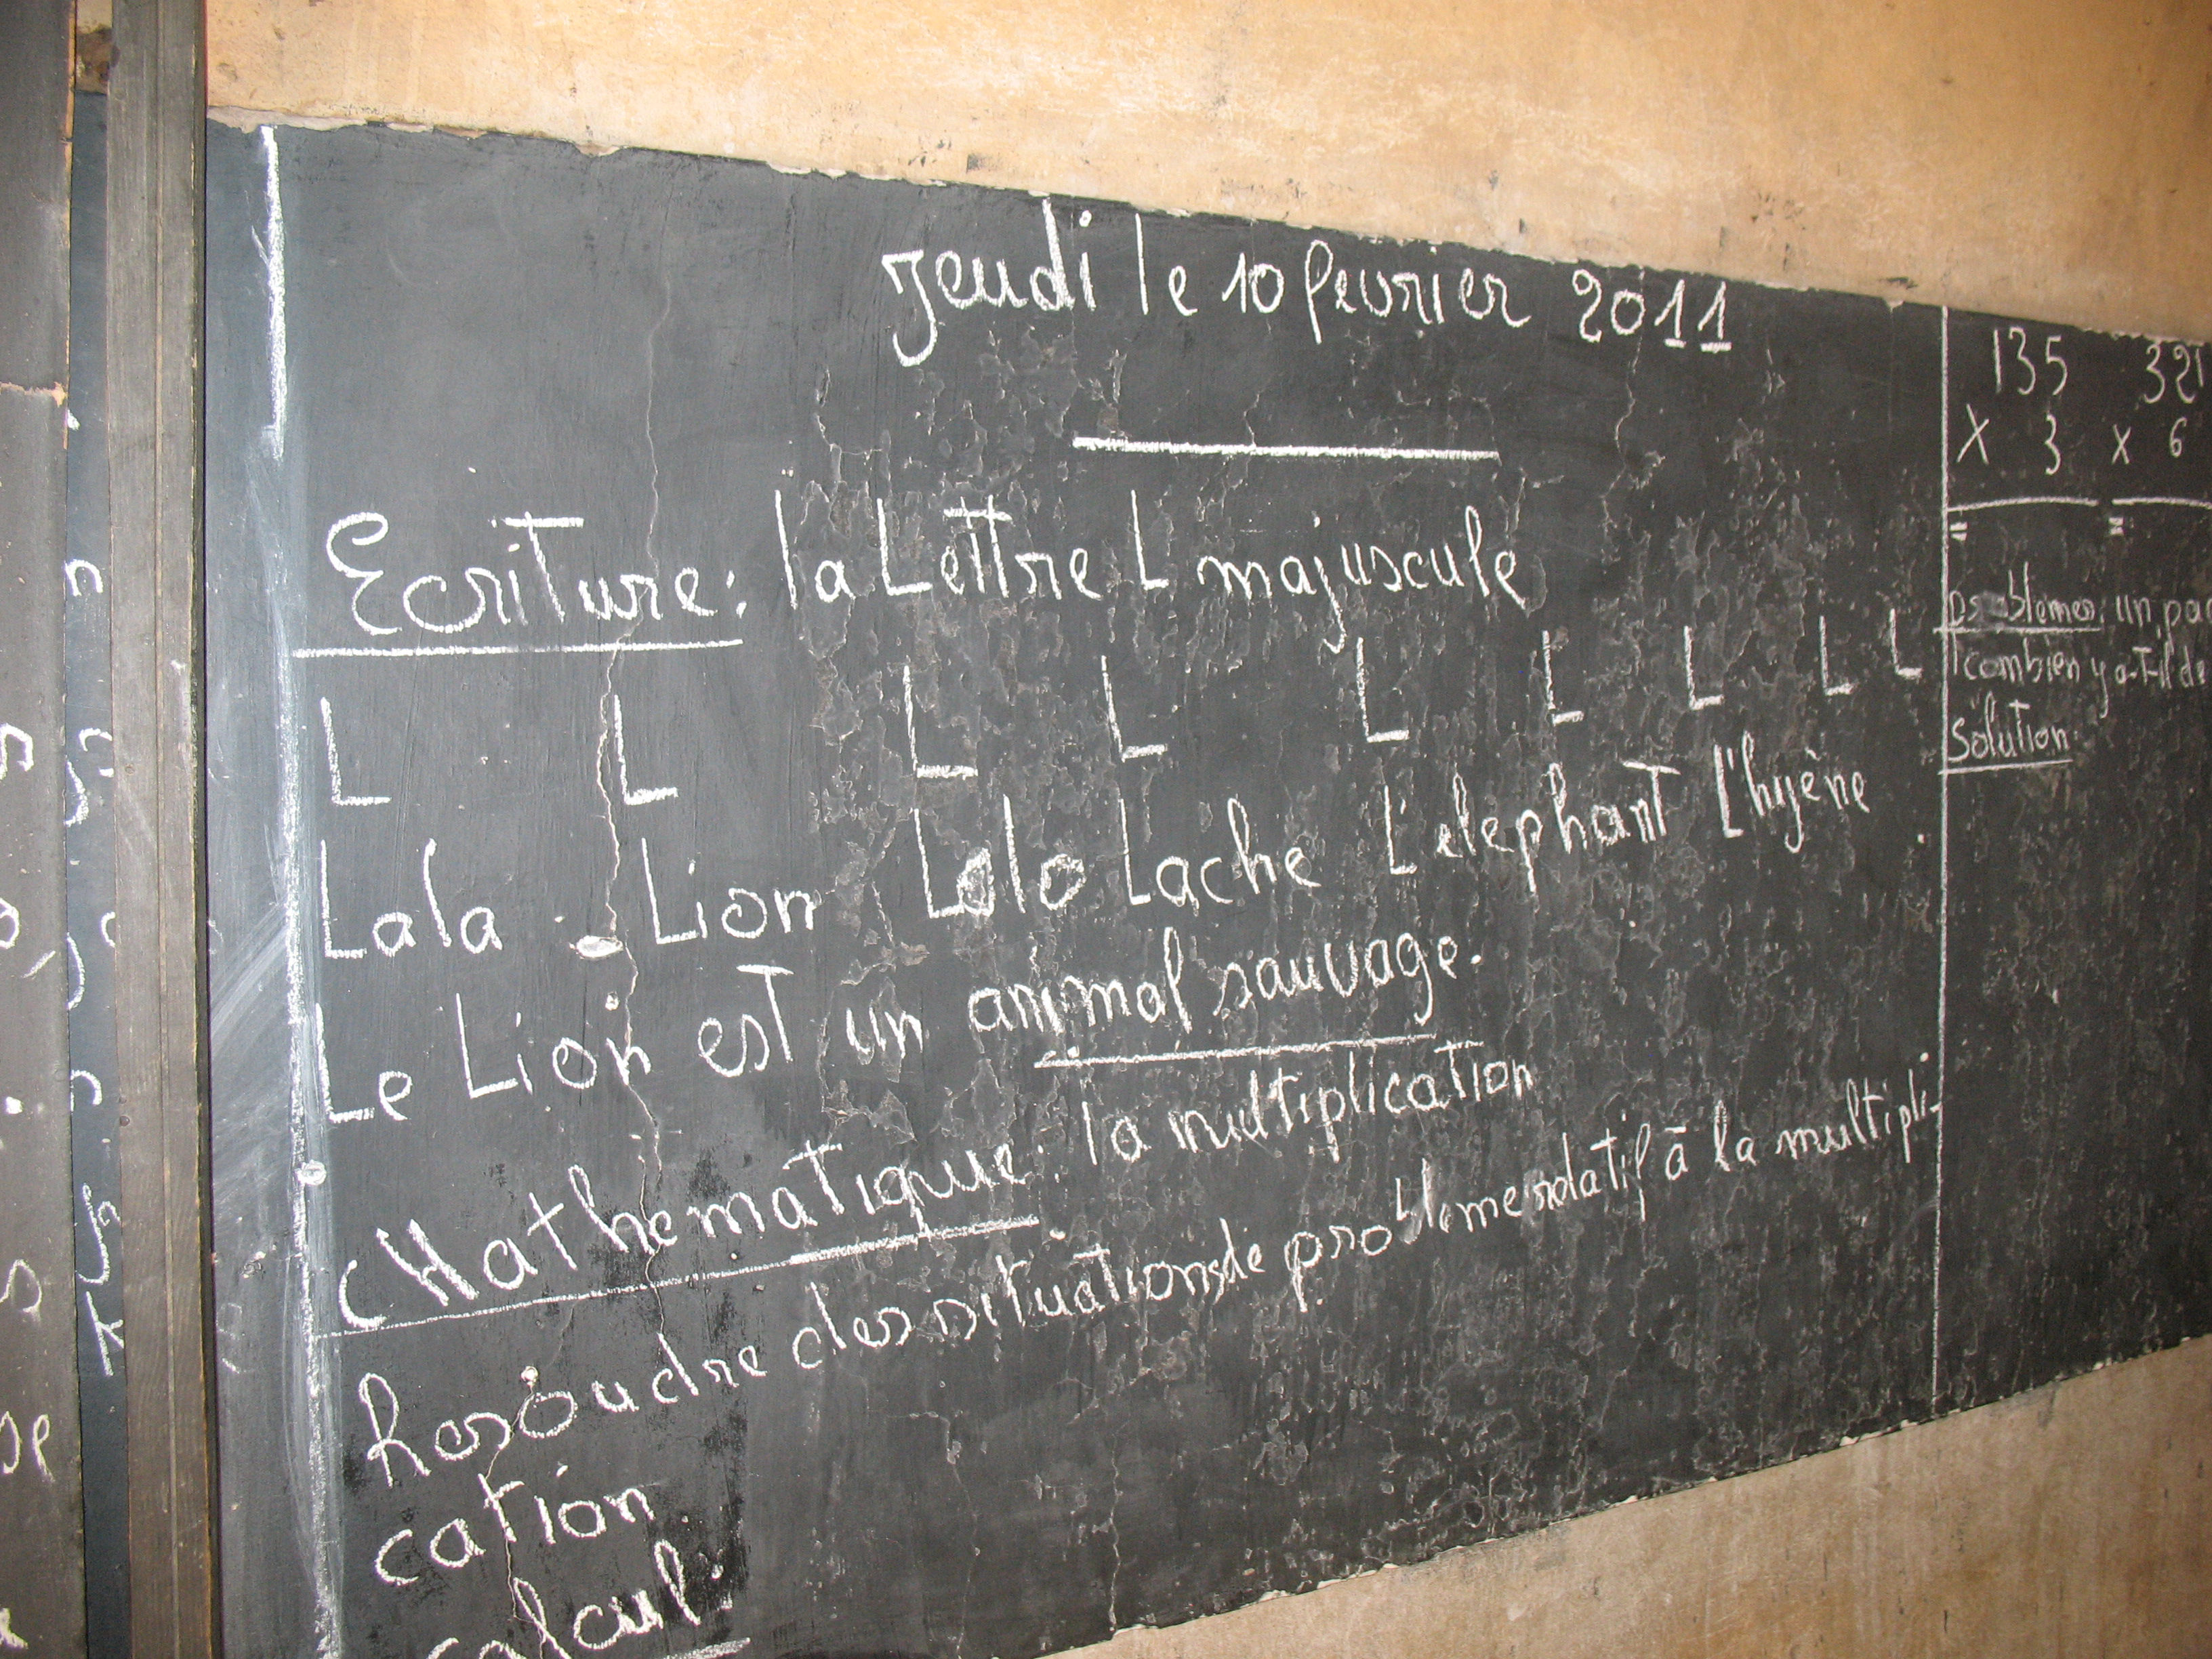 Jeudi le 10 fevrier 2011
Ecriture: la Lettre L majuscule
L L L L L L L L L
Lala Lion Lolo Lache L'elephant l'hyène
Le Lion est un animal sauvage.
Mathematique: la multiplication
Resoudre des situations de probleme relatif à la multipli-
cation.
calcul:
135 321
x 3 x 6
= =
Problemes un
combien y a-t-il de
Solution.